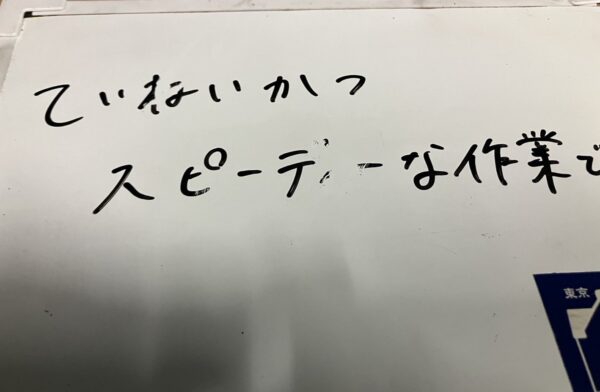 ていねいかつ
スピーディーな作業で
東京